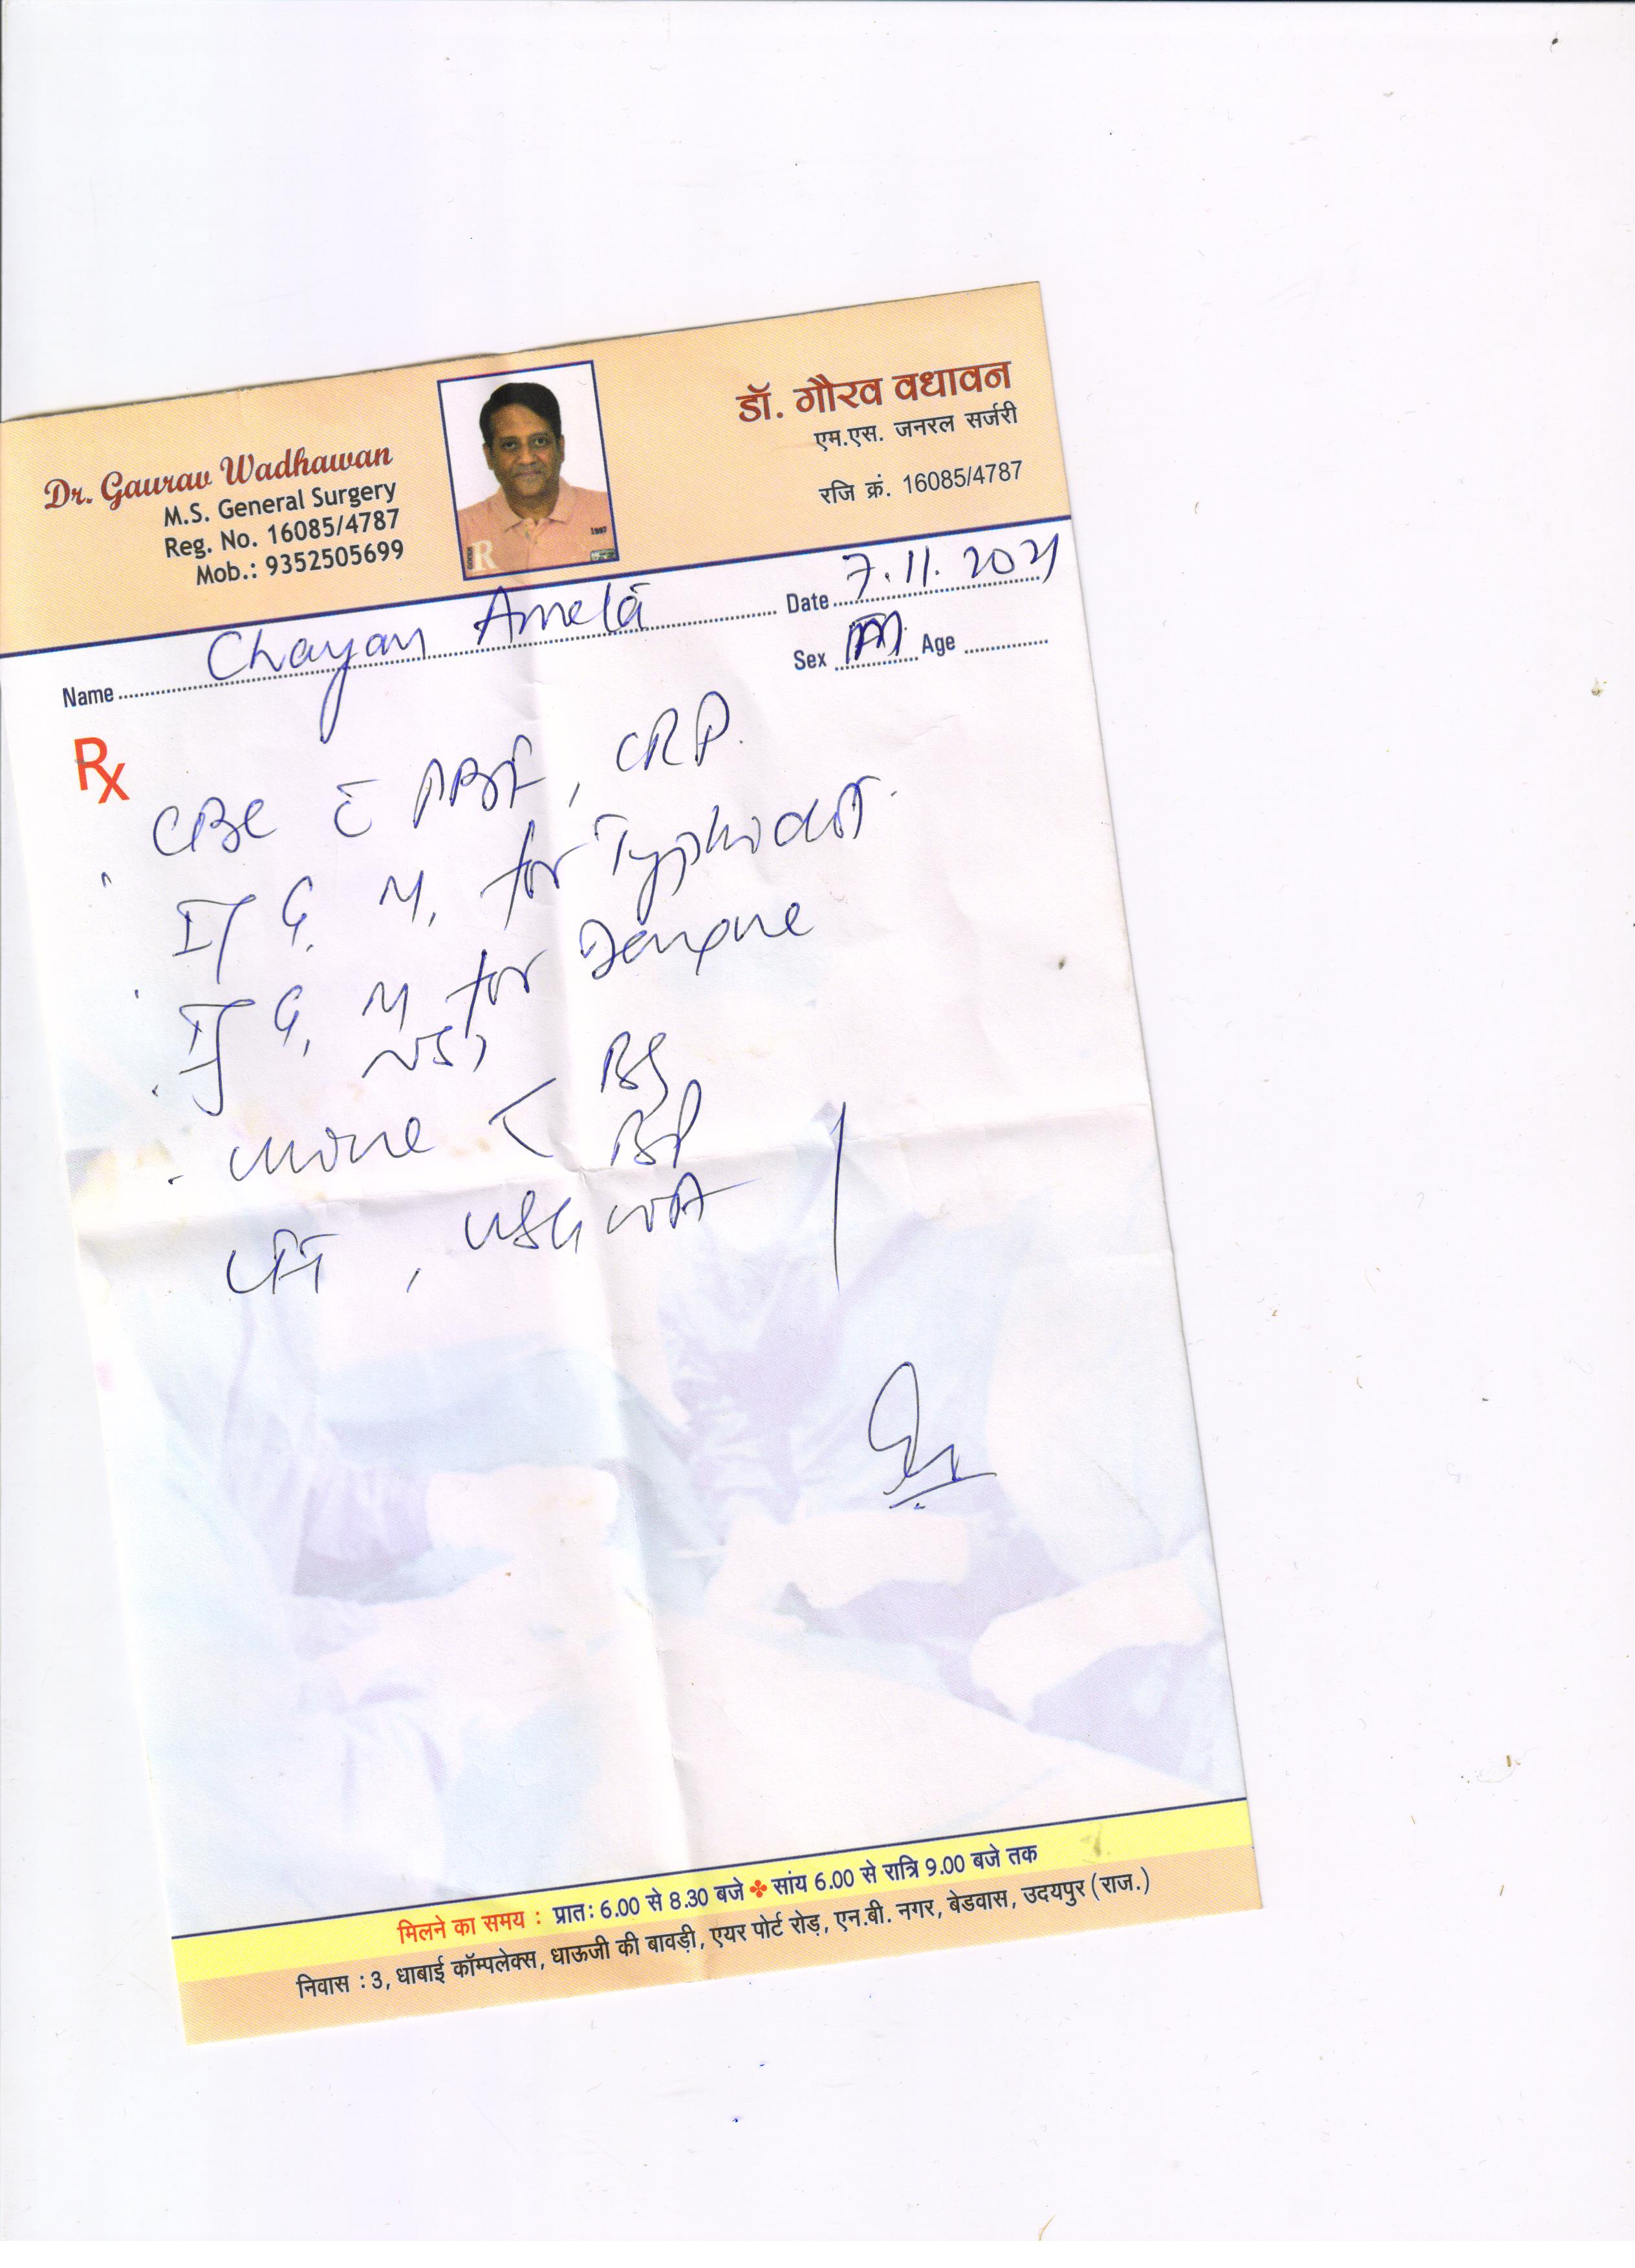 Dr. Gaurav Wadhawan
M.S. General Surgery
Reg. No. 16085/4787
Mob.: 9352505699
डॉ. गौरव वधावन
एम.एस. जनरल सर्जरी
रजि क्रं. 16085/4787
R
1987
Name Chayan Ameta
Date 7.11.2021
Sex M Age
Rx
CBC c̄ PBF, CRP.
Ig G, M, for Typhidot.
Ig G, M for Dengue
NS1
Urine < BS
BP
LFT, USG WA
मिलने का समय : प्रातः 6.00 से 8.30 बजे सांय 6.00 से रात्रि 9.00 बजे तक
निवास : 3, धाबाई कॉम्पलेक्स, धाऊजी की बावड़ी, एयर पोर्ट रोड़, एन.बी. नगर, बेडवास, उदयपुर (राज.)